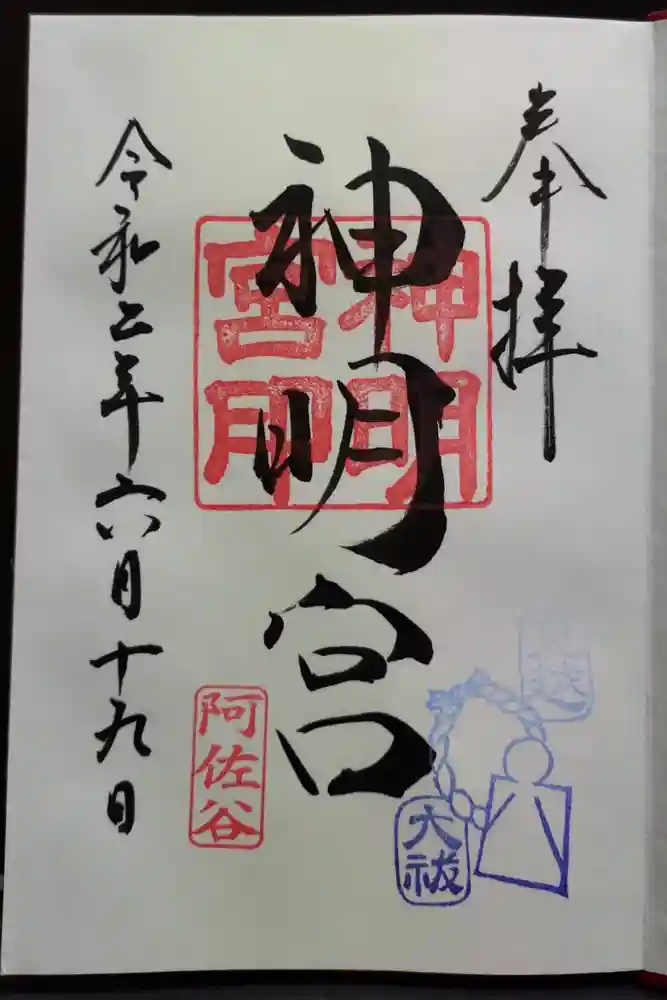 奉拝
神明宮
神明
宮印
令和二年六月十九日
阿佐谷
夏越
大祓